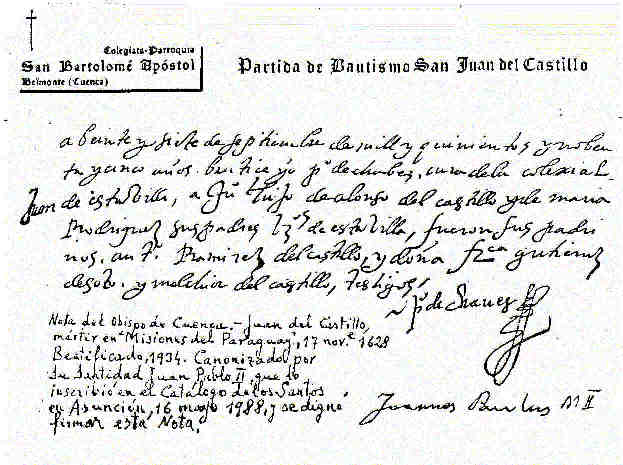 Colegiata-Parroquia
San Bartolomé Apóstol
Belmonte (Cuenca)
Partida de Bautismo San Juan del Castillo
a beinte y siete de septiembre de mill y quinientos y noben
ta y cinco años. bautice yo pº de chabez, cura de la colexial.
Juan de esta billa, a Juº hijo de alonso del castillo y de maria
Rodriguez sus padres vzºs de esta billa, fueron sus padri
nos. antº. Ramirez del castillo, y doña frca gutierrez
de soto. y melchior del castillo, testigos,
pº de Chaues
Nota del Obispo de Cuenca.- Juan del Castillo,
mártir en "Misiones del Paraguay", 17 nov.e 1628
Beatificado, 1934. Canonizado por
Su Santidad Juan Pablo II, que lo
inscribió en el Catálogo de los Santos
en Asunción, 16 mayo 1988, y se dignó
firmar esta Nota.
Joannes Paulus PP II